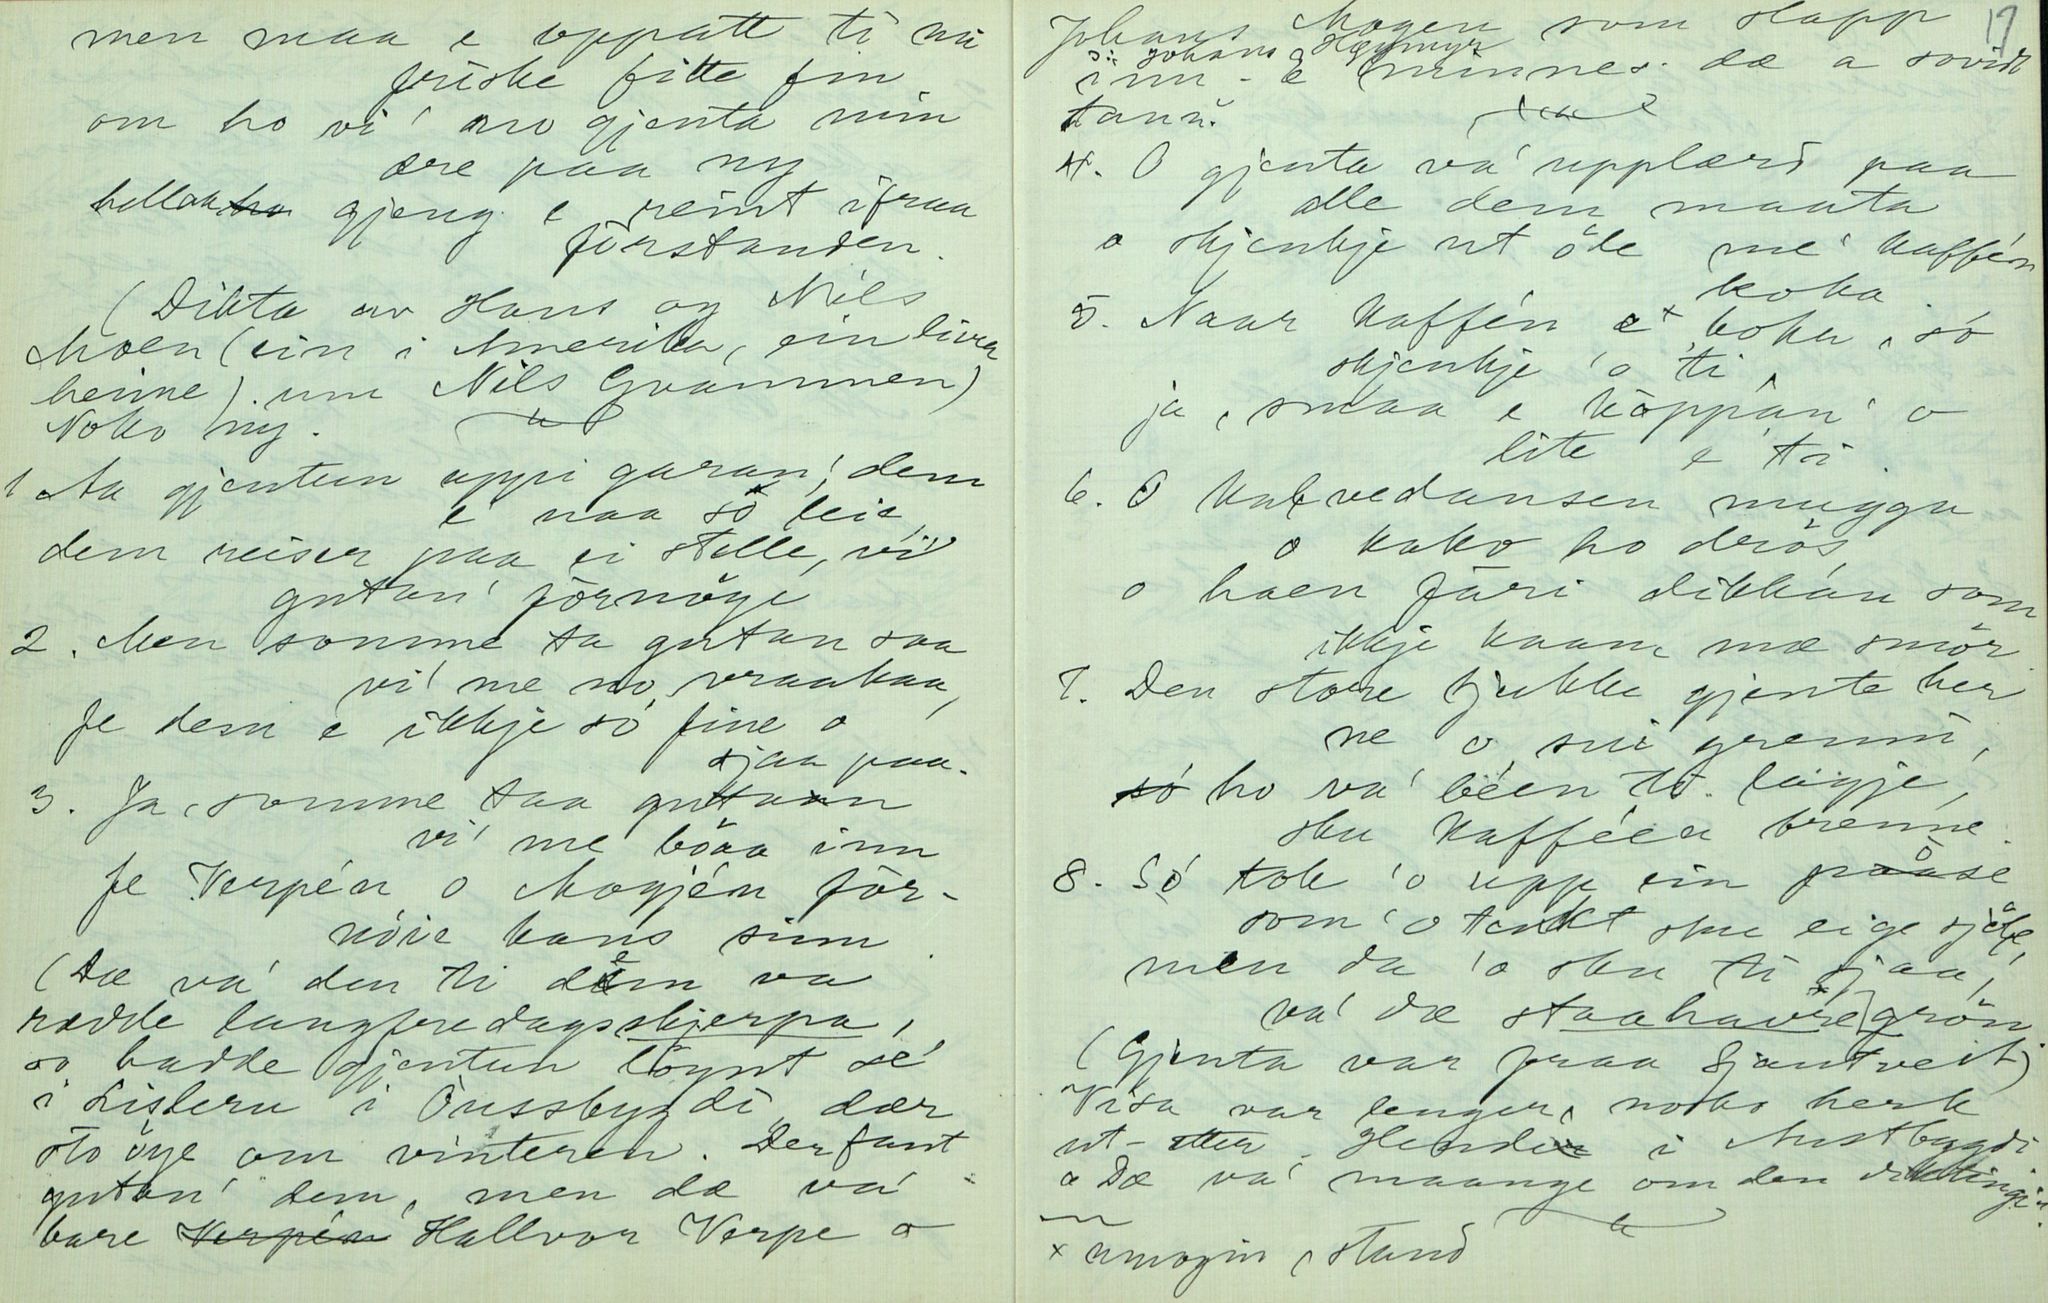 men maa e oppatt ti nå
friske fitte fin
om ho vi' aro gjenta min
øre paa ny
hellaa gjeng e reint ifraa
förstanden.
(Dikta av Hans og Nils
Moen (ein i Amerika, ein livra
heime) um Nils Gvammen)
Noko ny.
1 Aa gjentun uppi garan', dem
e naa só leie,
dem reiser paa ei stelle, vi'
gutan' förnöye
2. Men somme ta gutan saa
vi' me no vraakaa,
fe dem e ikkje só fine o
sjaa paa.
3. Ja, somme taa gutaan
vi' me böaa inn
fe Verpén o Mogjén för-
nöie kans sinn.
(Dæ va' den ti dem va
rædde langfredagsskjerpa,
so hadde gjentun löynt se'
i Listeru i Öussbygdi dær
sto öye om vinteren. Der fant
gutan' dem, men dæ va'
bare Verpén Hallvor Verpe o
17
Johans Mogen som slapp
ɔ: Johans Haymyr
inn - e minnes dæ a sovidt
tann.
4. O gjenta va' upplærd paa
alle dem maata
o skjenkje ut öle me' kaffén
koka.
5. Naar kaffén e x koka, só
skjenkje 'o ti,
ja, smaa e köppan' o
lite e ti.
6. O kalvedansen mugga
o kako ho drös
o haen färi dikkán som
ikkje kaam mæ smör.
7. Den store tjukke gjente her
ne o sui grenni,
só ho va' bèen te. läigje,
sku kafféen brenne.
8. Só tok 'o upp ein påase
som 'o tenkt sku eige sjöle,
men da 'o sku ti sjaa,
va' dæ staahavregrön
(Gjenta var fraa Sjantveit)
Visa var lenger, noko herk
ut-etter Henden i Austbygdi
o Dæ va' maange om den diktingji.
x umogin, stand